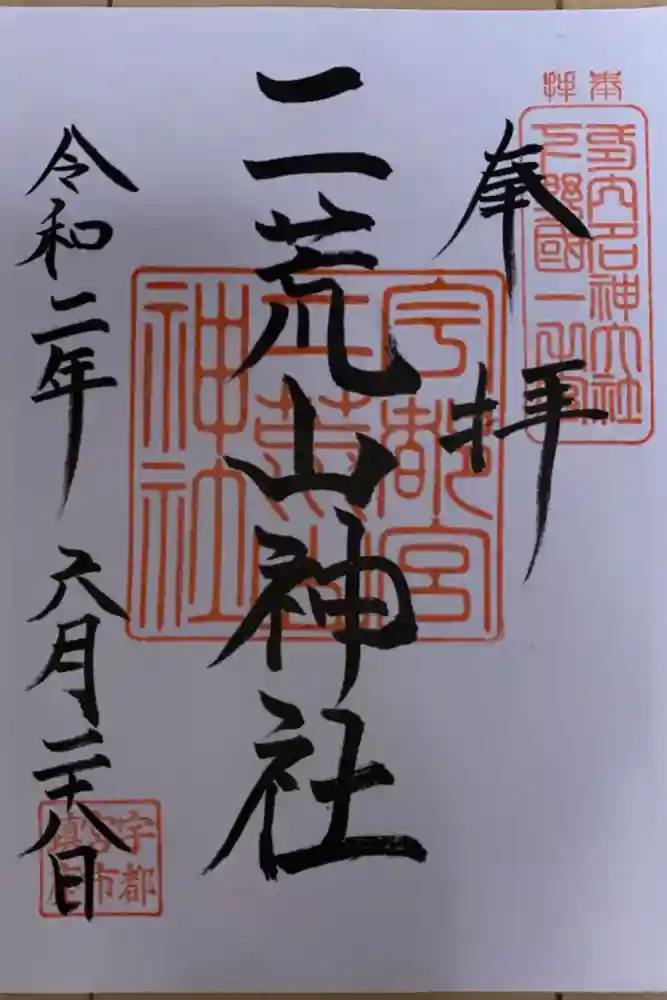 奉拝
式内名神大社
下野國一之宮
奉拝
二荒山神社
宇都宮
二荒山
神社
令和二年 六月二十八日
宇都
宮市
鎮座